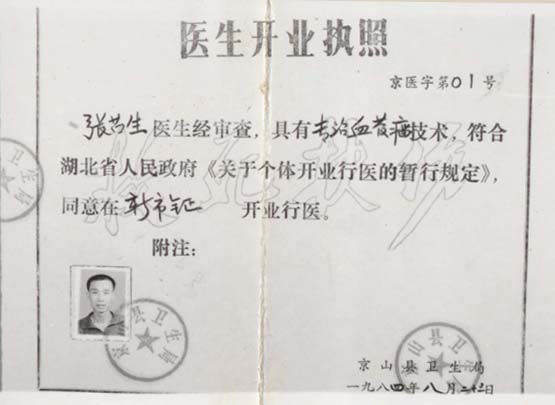 医生开业执照
京医字第01号
张苏生医生经审查，具有专治血黄病技术，符合
湖北省人民政府《关于个体开业行医的暂行规定》，
同意在新市镇 开业行医。
附注：
京山县卫生局
京山县卫生局
京山县卫生局
一九八四年八月二十三日